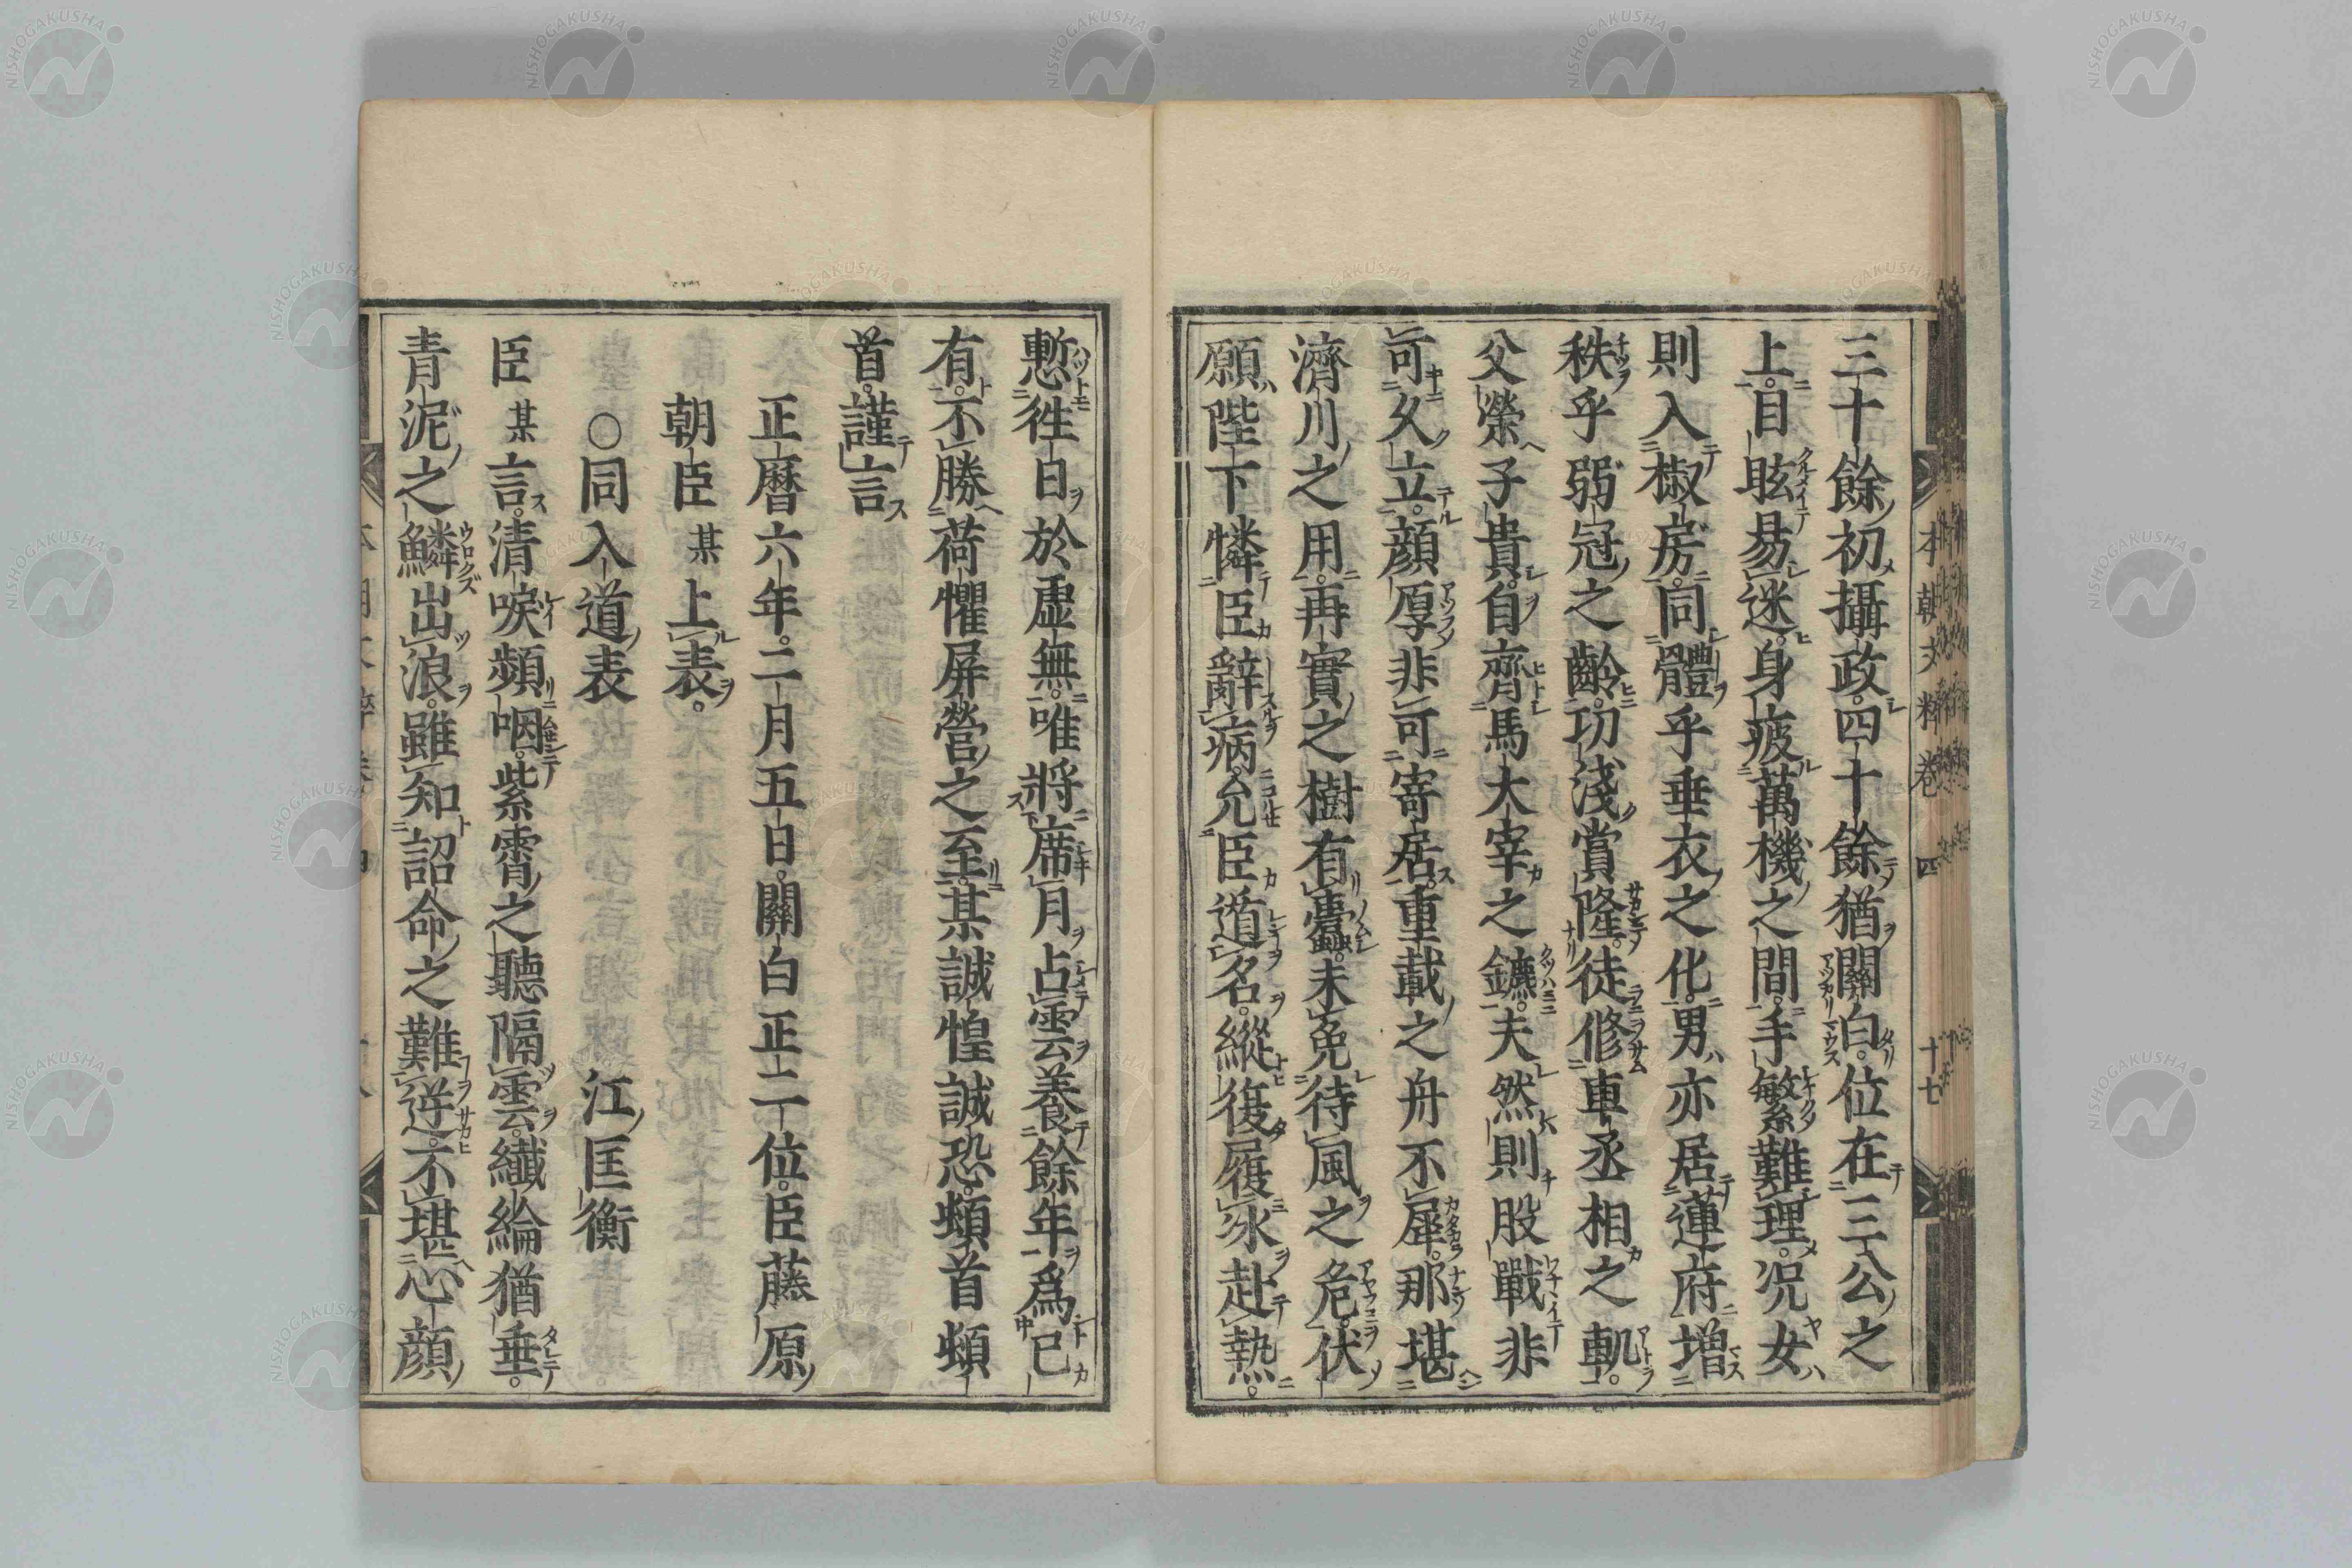 三十餘初攝政四十餘猶關白。位在三公之
上。目眩易迷。身疲萬機之間。手繁難理。况女
則入椒房。同體乎垂衣之化。男亦居蓮府。増
秩乎弱冠之齡。功淺賞隆。徒修車丞相之軏。
父榮子貴。自齊馬大宰之鑣。夫然則股戰非
可久立。顔厚非可寄居。重載之舟不犀。那堪
濟川之用。再實之樹有蠹。未免待風之危。伏
願陛下憐臣辭病。允臣遁名。縱復履氷赴熱。
慙徃日於虚無。唯將席月占雲養餘年爲已
有。不勝荷懼屏營之至。某誠惶誠恐。頓首頓
首。謹言
正暦六年。二月五日。關白正二位。臣藤原
朝臣某上表。
〇同入道表 江匡衡
臣某言。清唳頻咽。紫霄之聽隔雲。纎綸猶垂。
青泥之鱗出浪。雖知詔命之難逆。不堪心顔
本朝文粹卷 四 十七